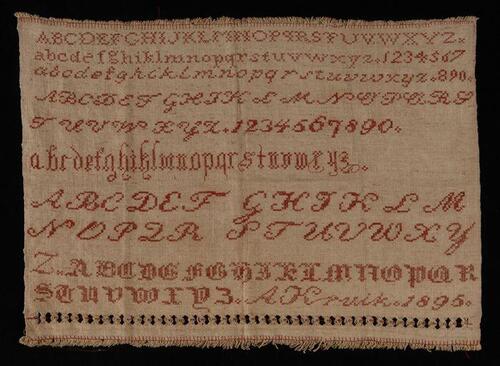 ABCDEFGHIJKLMNOPQRSTUVWXYZ.
abcdefghijklmnopqrstuvwxyz.1234567
abcdefghijklmnopqrstuvwxyz.890.
ABCDEFGHIKLMNOPQRS
TUVWXYZ.1234567890.
abcdefghiklmnopqrstuvwxyz.
ABCDEFGHIKLM
NOPQRSTUVWXY
Z.ABCDEFGHIKLMNOPQR
STUVWXYZ. A Kruik. 1895.